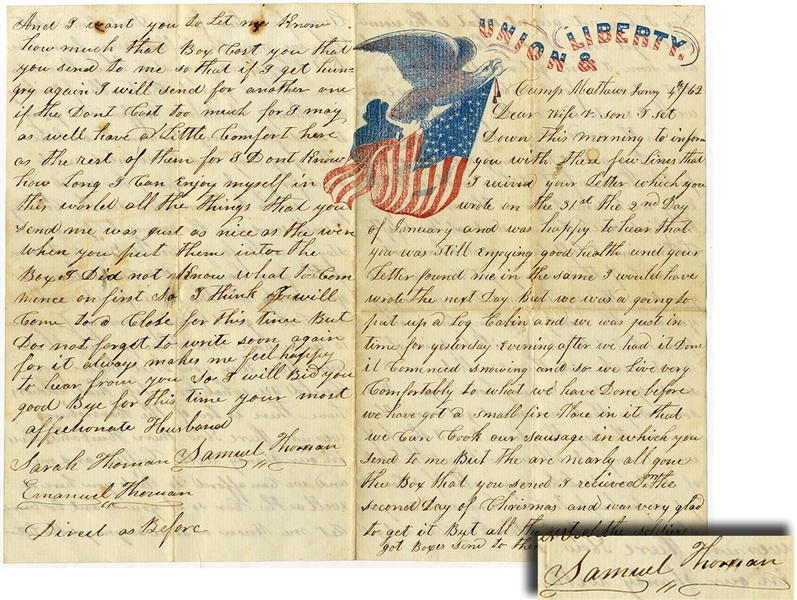 UNION & LIBERTY.
Camp Mathews Jany 4th/62
Dear Wife & Son I set
Down this morning to inform
you with these few Lines that
I reived your Letter which you
wrote on the 31st the 2nd Day
of January and was happy to hear that
you was still Enjoying good health and your
Letter found me in the same I would have
wrote the next Day But we was a going to
put up a Log Cabin and we was just in
time for yesterday Evening after we had it Done
it Commenced snowing and so we Live very
Comfortably to what we have Done before
we have got a small fire place in it that
we Can Cook our sausage in which you
send to me But the are nearly all gone
the Box that you send I recieved on the
second Day of Christmas and was very glad
to get it But all the rest of the soldiers
got Boxes send to them
And I want you to Let me Know
how much that Box Cost you that
you send to me so that if I get hun-
gry again I will send for another one
if the Dont Cost too much for I may
as well have a Little Comfort here
as the rest of them for I Dont Know
how Long I Can Enjoy myself in
this world all the things that you
send me was just as nice as the wen
when you put them into the
Box I Did not Know what to Com
mence on first So I think I will
Come to a Close for this time But
Doe not forget to write soon again
for it always makes me feel happy
to hear from you so I will Bid you
good Bye for this time your most
affectionate Husband
Sarah Thoman Samuel Thoman
Emanuel Thoman
Direct as Before
Samuel Thoman